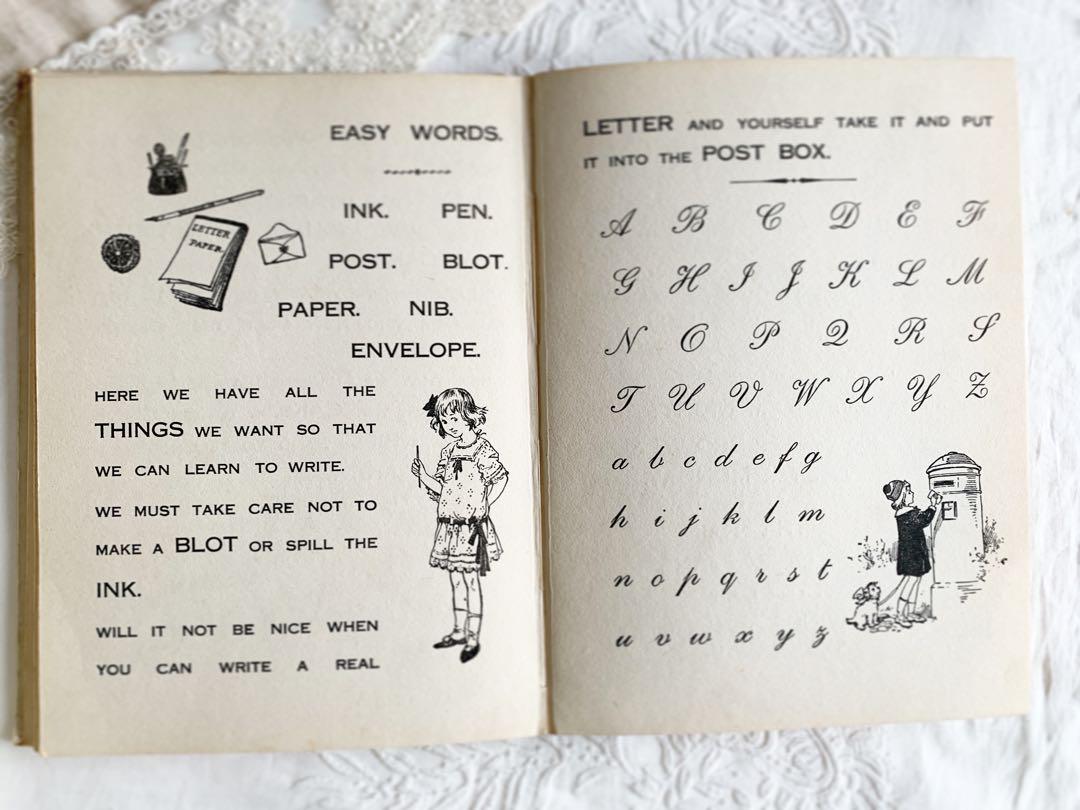 EASY WORDS.
LETTER
PAPER.
INK. PEN.
POST. BLOT.
PAPER. NIB.
ENVELOPE.
HERE WE HAVE ALL THE
THINGS WE WANT SO THAT
WE CAN LEARN TO WRITE.
WE MUST TAKE CARE NOT TO
MAKE A BLOT OR SPILL THE
INK.
WILL IT NOT BE NICE WHEN
YOU CAN WRITE A REAL
LETTER AND YOURSELF TAKE IT AND PUT
IT INTO THE POST BOX.
A B C D E F
G H I J K L M
N O P Q R S
T U V W X Y Z
a b c d e f g
h i j k l m
n o p q r s t
u v w x y z